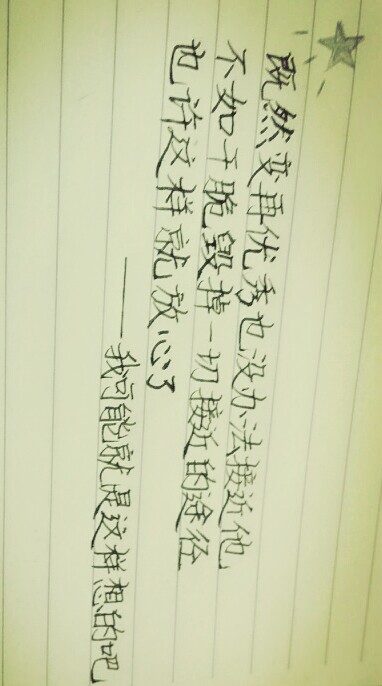 既然变再优秀也没办法接近他
不如干脆毁掉一切接近的途径
也许这样就放心了
——我可能就是这样想的吧